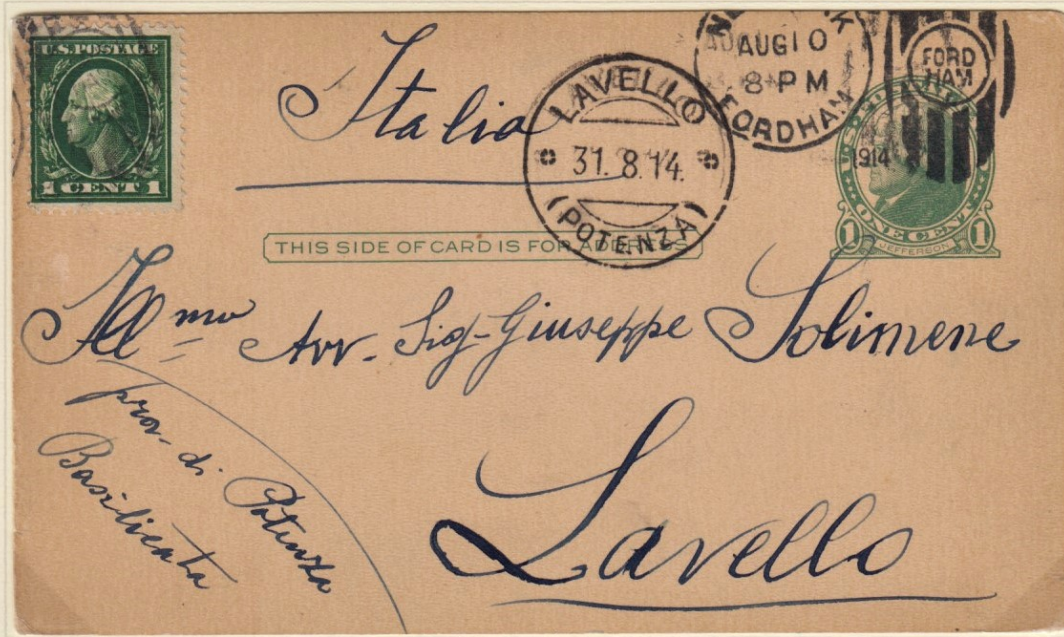 U.S. POSTAGE
1 CENT 1
Italia
LAVELLO
31. 8. 14.
(POTENZA)
AUG 10
8-PM
FORDHAM
1914
FORD
HAM
ONE CENT
1 JEFFERSON 1
THIS SIDE OF CARD IS FOR ADDRESS
Ill mo Avv. Sig. Giuseppe Solimene
prov. di Potenza
Basilicata
Lavello